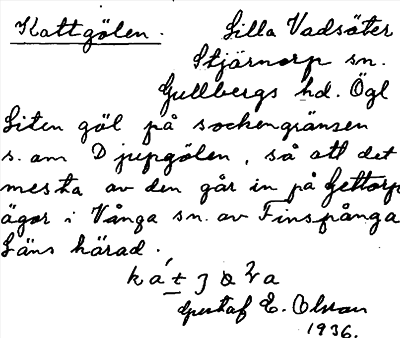 Kattgölen. Lilla Vadsäter
Stjärnorp sn.
Gullbergs hd. Ögl
Liten göl på sockengränsen
s. om Djupgölen, så att det
mesta av den går in på Gettorp
ägor i Vånga sn. av Finspånga
Läns härad.
Gustaf E. Olsson
1936.